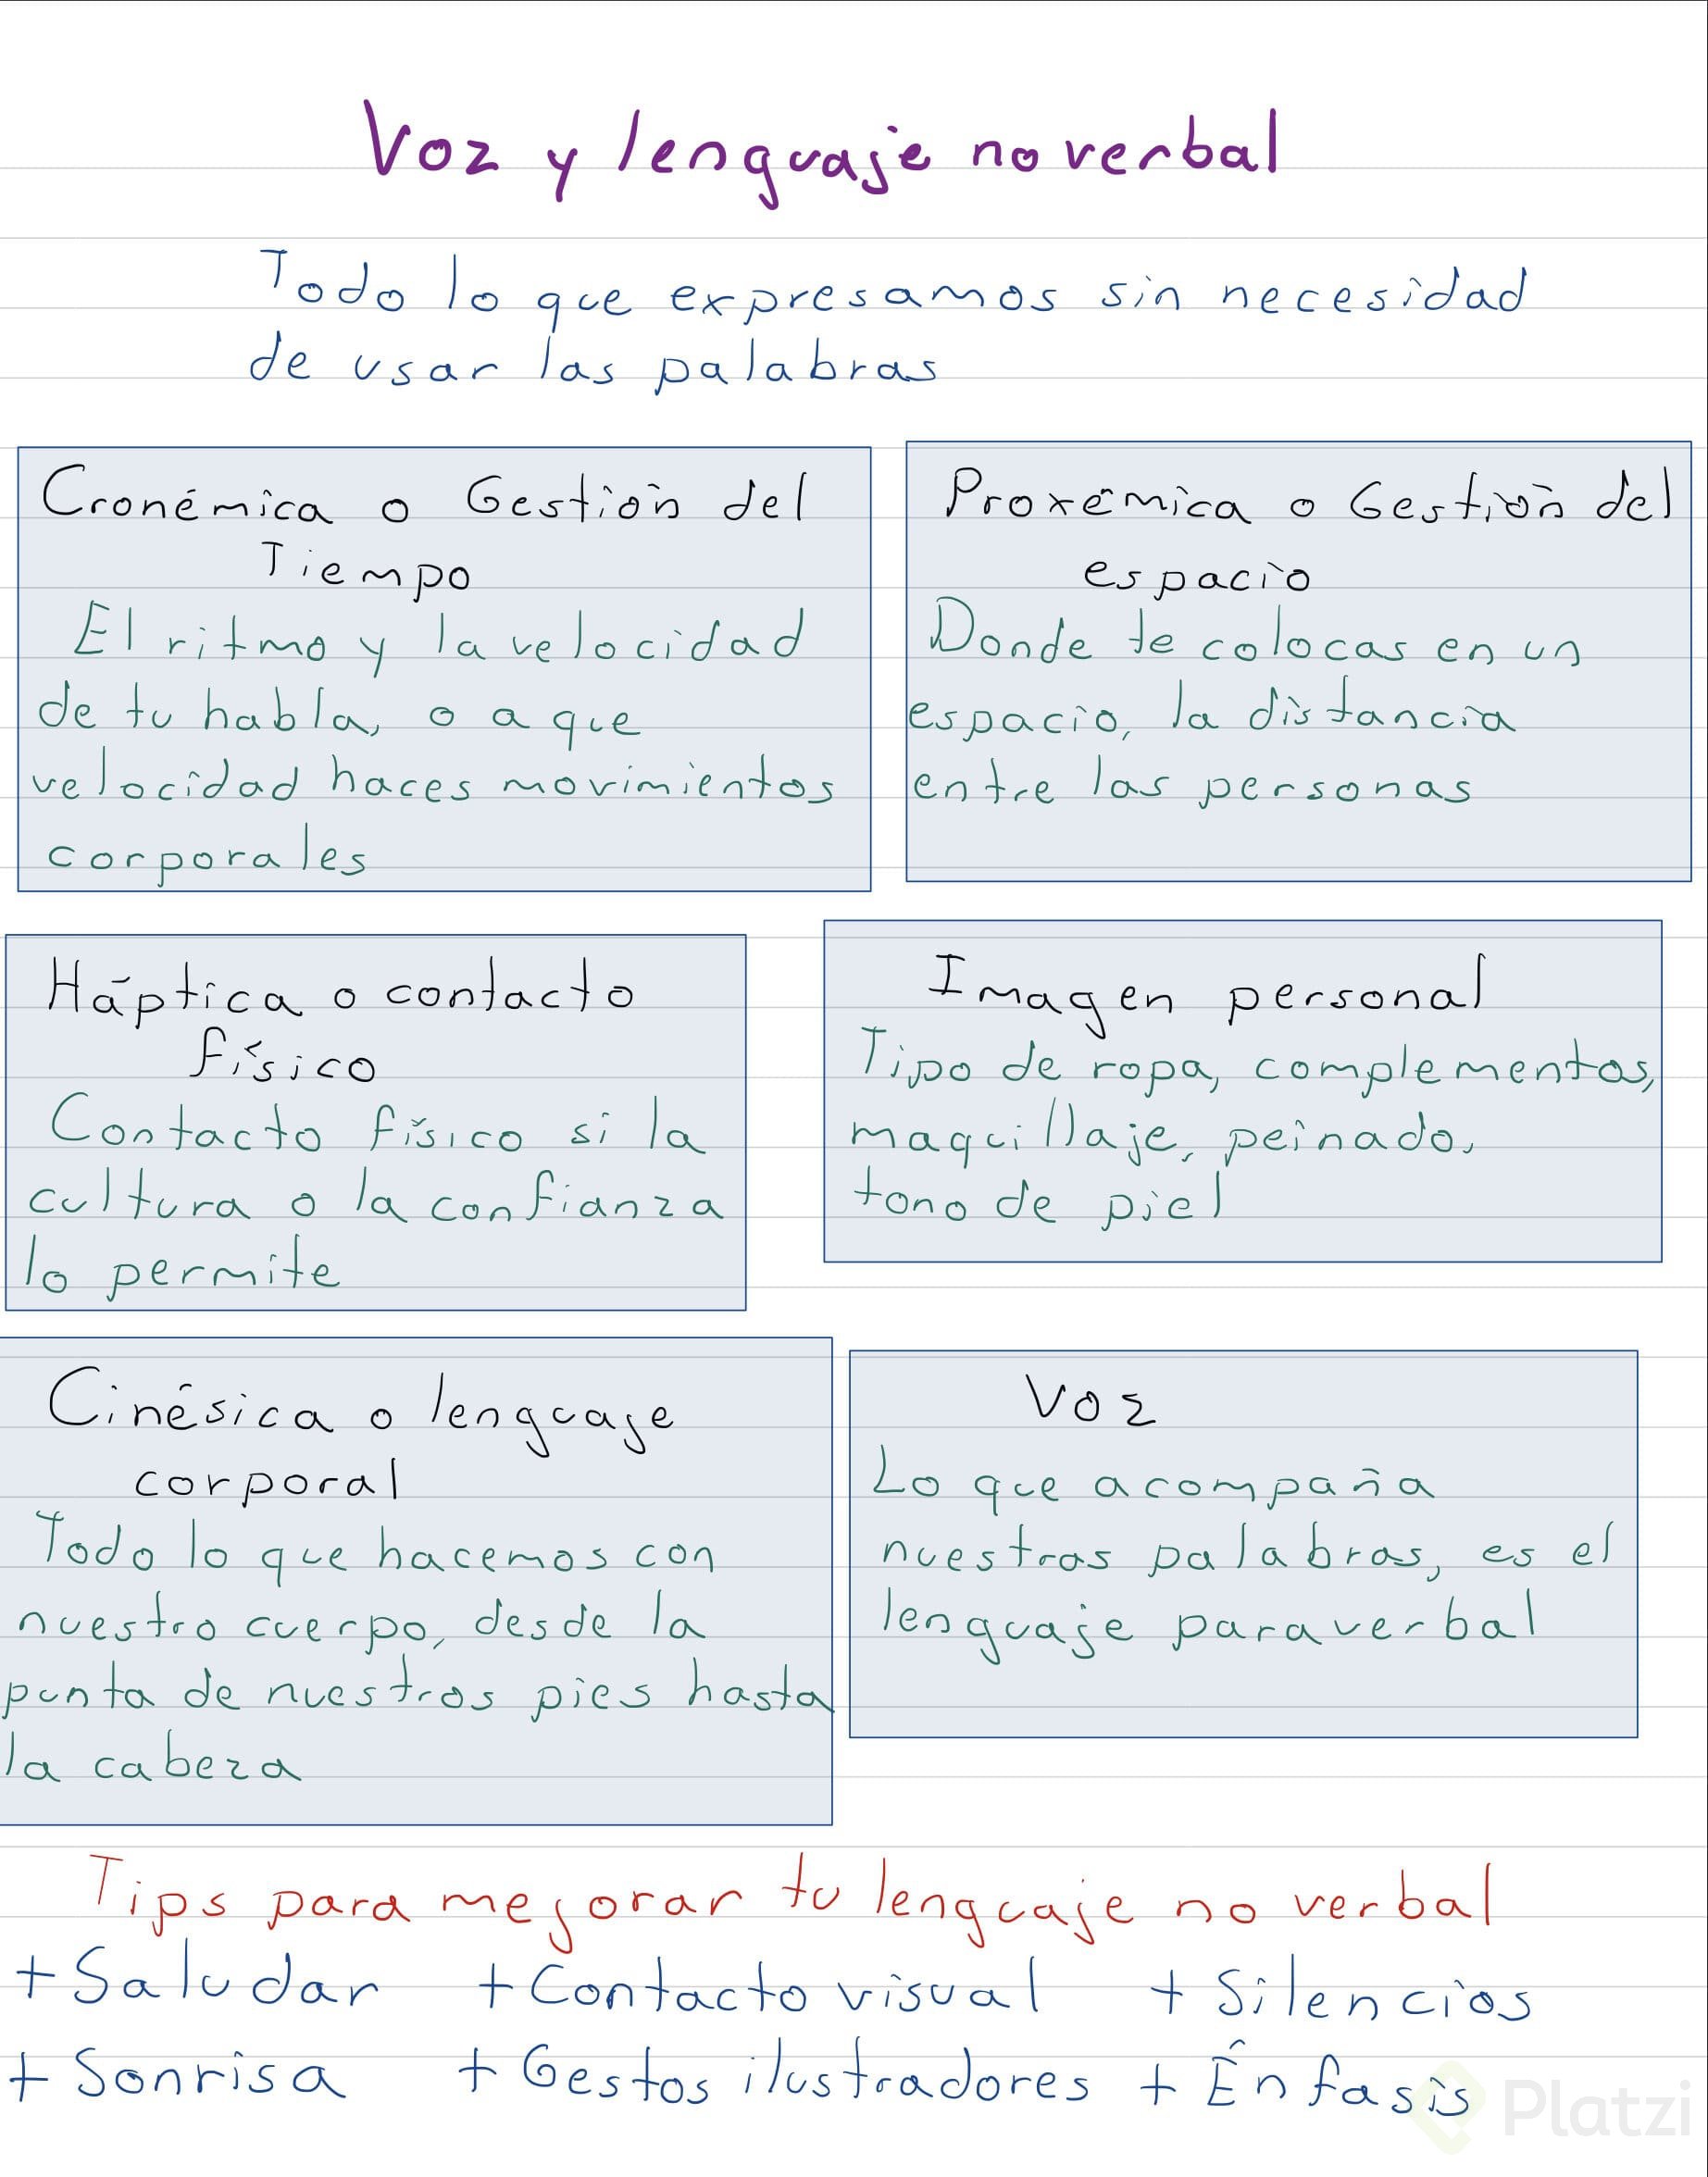 Voz y lenguaje no verbal
Todo lo que expresamos sin necesidad
de usar las palabras
Cronémica o Gestión del
Tiempo
El ritmo y la velocidad
de tu habla, o a que
velocidad haces movimientos
corporales
Proxémica o Gestión del
espacio
Donde te colocas en un
espacio, la distancia
entre las personas
Háptica o contacto
físico
Contacto físico si la
cultura o la confianza
lo permite
Imagen personal
Tipo de ropa, complementos,
maquillaje, peinado,
tono de piel
Cinésica o lenguaje
corporal
Todo lo que hacemos con
nuestro cuerpo, desde la
punta de nuestros pies hasta
la cabeza
Voz
Lo que acompaña
nuestras palabras, es el
lenguaje paraverbal
Tips para mejorar tu lenguaje no verbal
+ Saludar + Contacto visual + Silencios
+ Sonrisa + Gestos ilustradores + Énfasis
Platzi